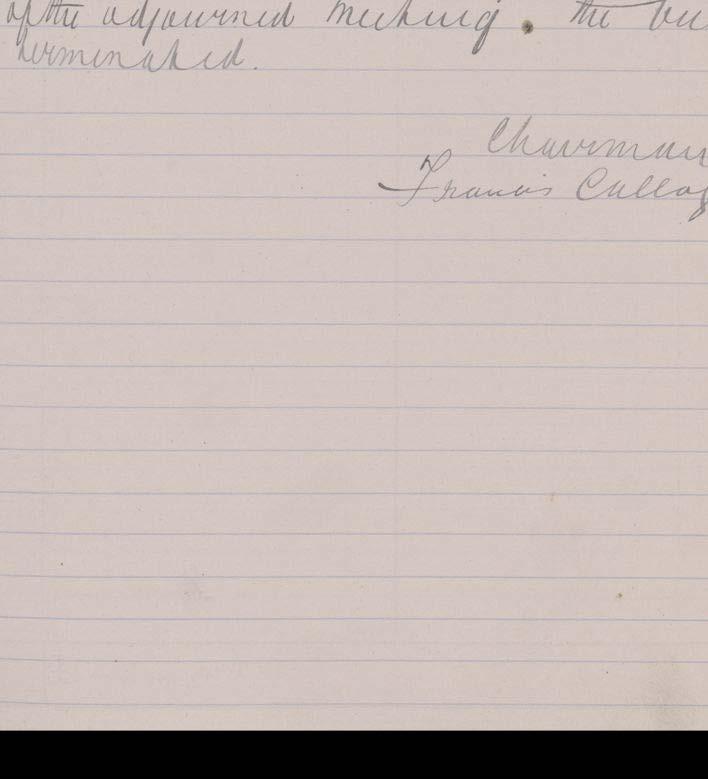 of the adjourned meeting. the
terminated.
Chairman
Francis